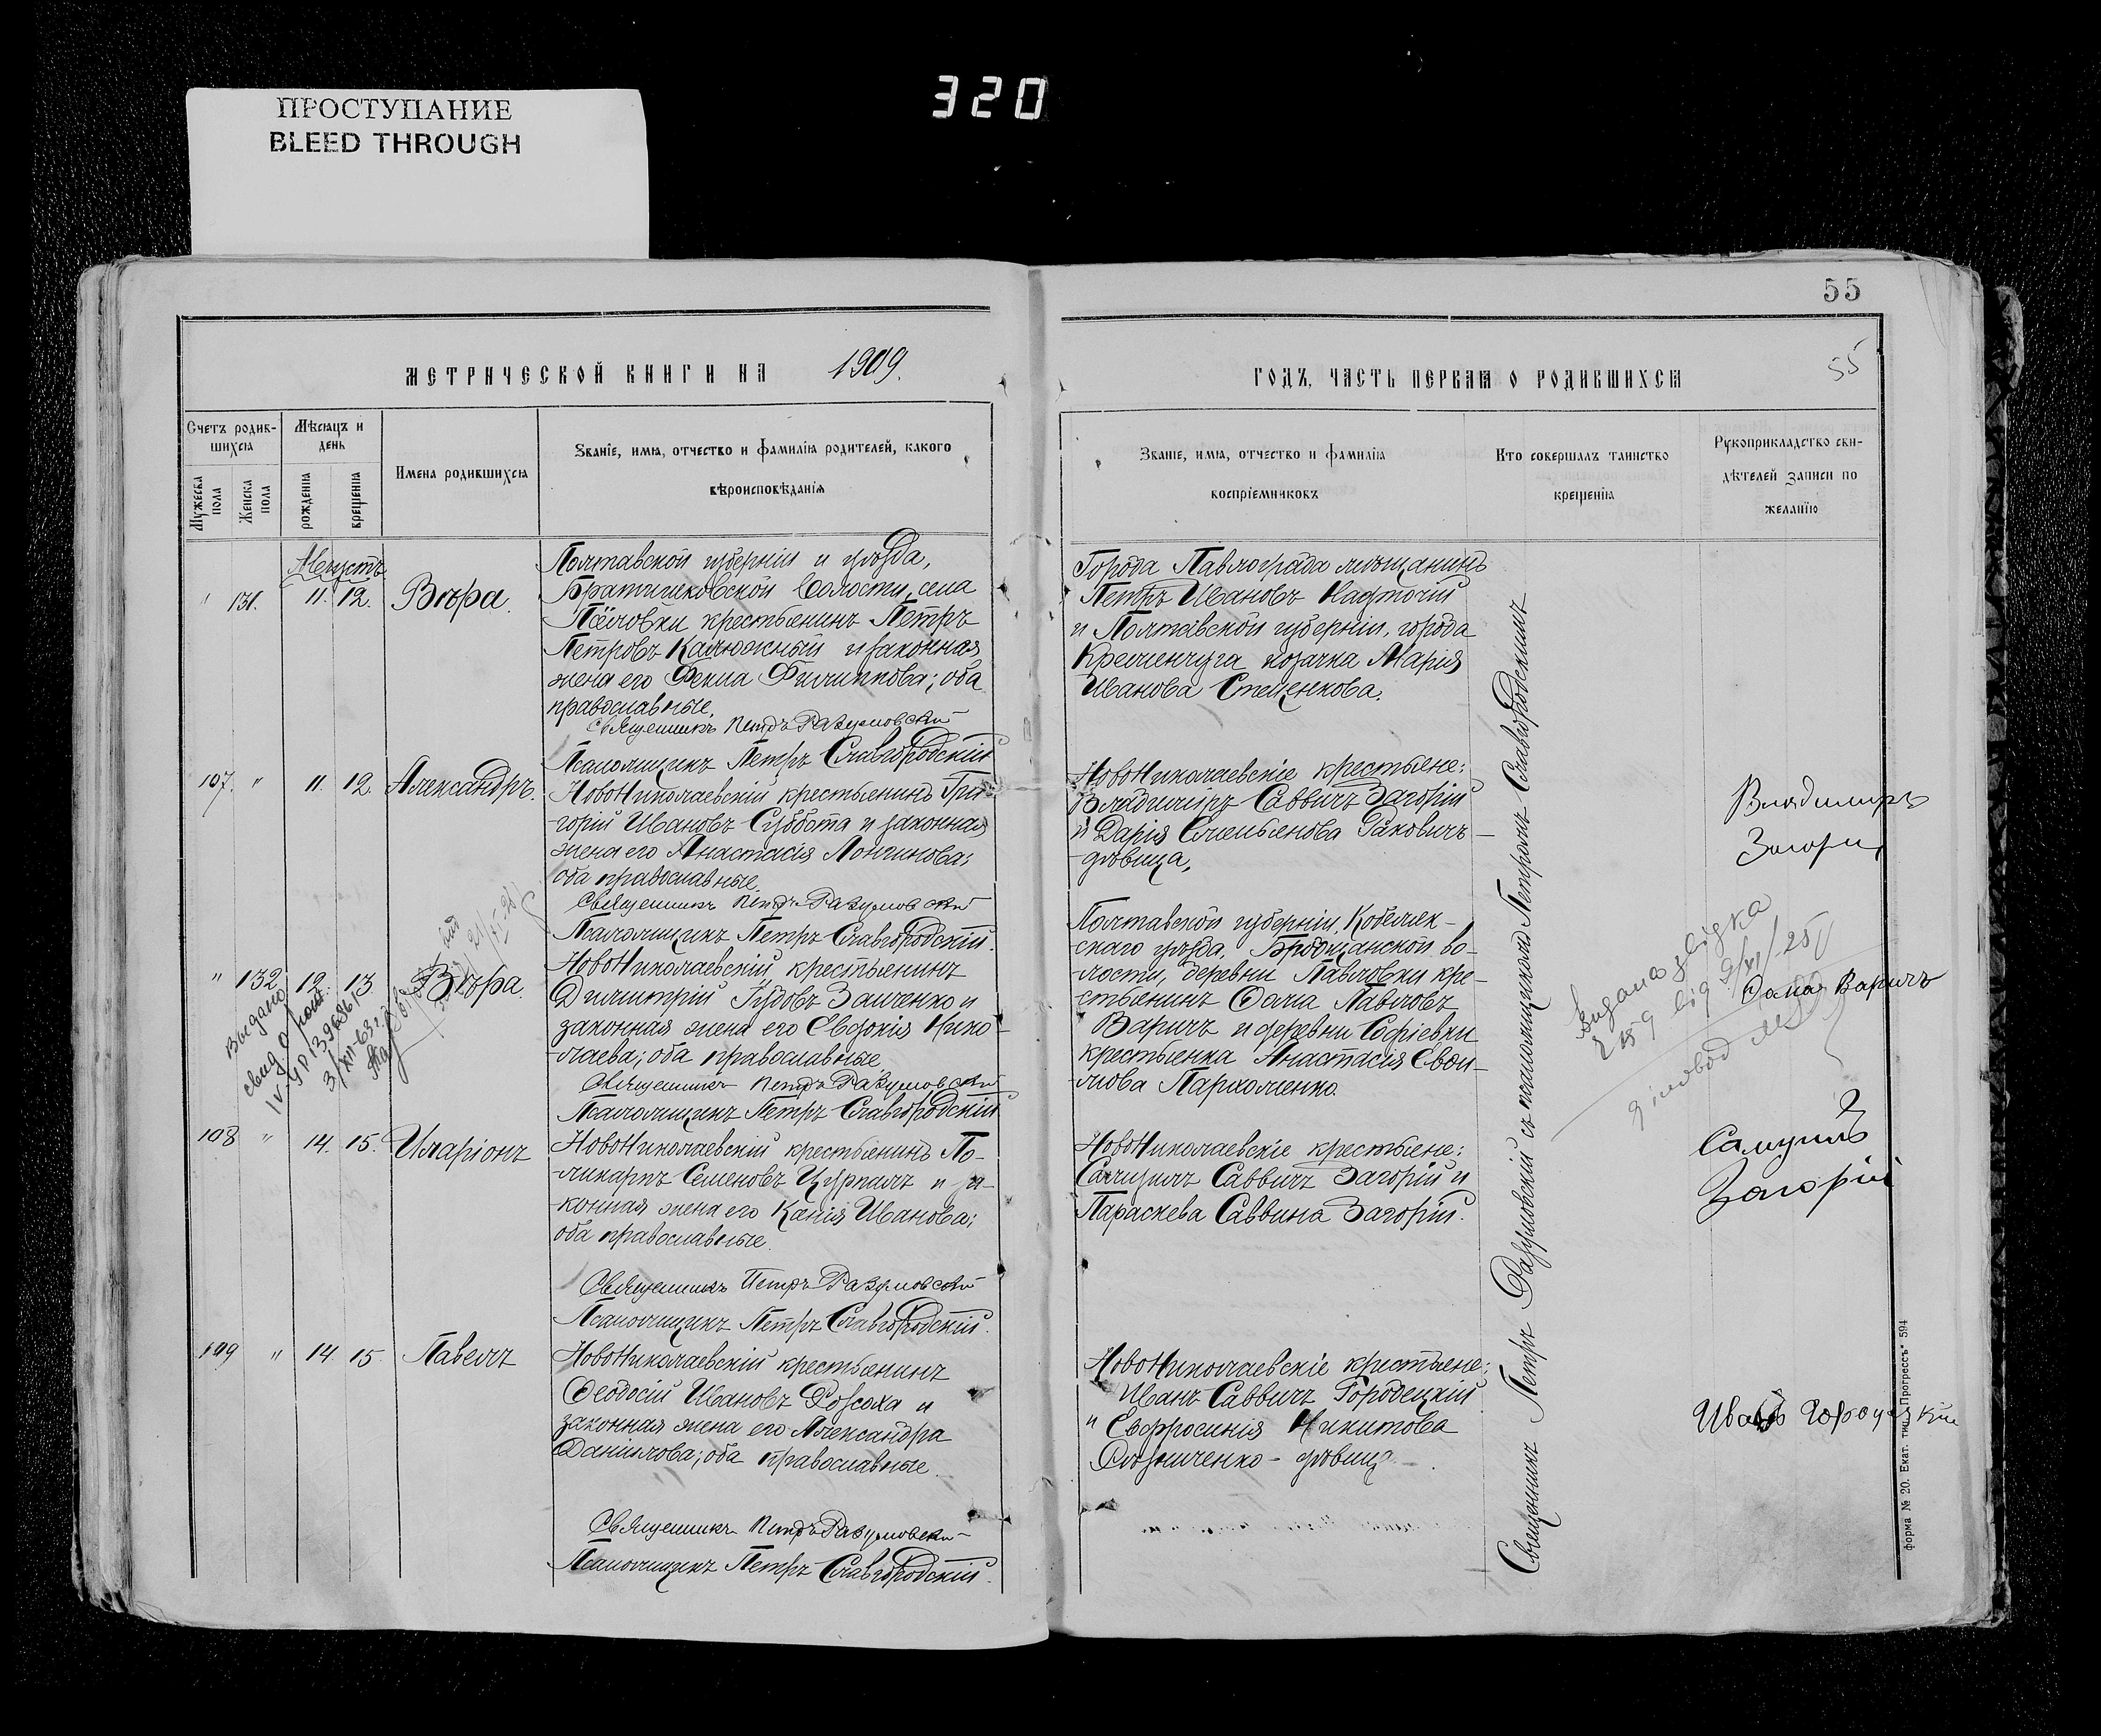 320
ПРОСТУПАНИЕ
BLEED THROUGH
55
55
МЕТРИЧЕСКОЙ КНИГИ НА 1909.
ГОДЪ, ЧАСТЬ ПЕРВАЯ О РОДИВШИХСЯ
Счетъ родив-
шихся
Мужеска пола
Женска пола
Мѣсяцъ и
день
рожденія
крещенія
Имена родившихся
Званіе, имя, отчество и фамилія родителей, какого
вѣроисповѣданія
Званіе, имя, отчество и фамилія
воспріемниковъ
Кто совершалъ таинство
крещенія
Рукоприкладство сви-
дѣтелей записи по
желанію
Августъ
" 131. 11. 12. Вѣра.
Полтавской губерніи и уѣзда,
Братешковской волости, села
крестьянинъ Петръ
Петровъ Калюжный и законная
жена его Фекла Филиппова; оба
православные.
Священникъ Петръ Разумовскій
Псаломщикъ Петръ Славгородскій
Города Павлограда мѣщанинъ
Петръ Ивановъ Нафточій
и Полтавской губерніи, города
Кременчуга козачка Марія
Иванова Стеценкова.
107. " 11. 12. Александръ.
НовоНиколаевскій крестьянинъ Гри-
горій Ивановъ Суббота и законная
жена его Анастасія Лонгинова;
оба православные.
Священникъ Петръ Разумовскій
Псаломщикъ Петръ Славгородскій.
НовоНиколаевскіе крестьяне:
Владиміръ Саввичъ Загорій
и Дарія Емельянова Раковичъ -
дѣвица.
Владимиръ
Загорій
" 132 12. 13. Вѣра.
НовоНиколаевскій крестьянинъ
Димитрій Іудовъ Заиченко и
законная жена его Евдокія Нико-
лаева; оба православные
Священникъ Петръ Разумовскій
Псаломщикъ Петръ Славгородскій
Полтавской губерніи, Кобеляк-
скаго уѣзда, Бродщанской во-
лости, деревни Павловки кре-
стьянинъ Ѳома Павловъ
Варичъ и деревни Софіевки
крестьянка Анастасія Евфи-
Пархоменко.
Ѳома Варичъ
Выдано
свид о рожд.
3/XII-63 г.
Видана
від
108 " 14. 15. Иларіонъ
НовоНиколаевскій крестьянинъ По-
ликарпъ Семеновъ Цурпалъ и за-
конная жена его Ксенія Иванова;
оба православные.
Священникъ Петръ Разумовскій
Псаломщикъ Петръ Славгородскій.
НовоНиколаевскіе крестьяне:
Самуилъ Саввичъ Загорій и
Параскева Саввина Загорій.
Самуилъ
Загорій
109 " 14. 15. Павелъ
НовоНиколаевскій крестьянинъ
Ѳеодосій Ивановъ Розсоха и
законная жена его Александра
Данилова; оба православные.
Священникъ Петръ Разумовскій
Псаломщикъ Петръ Славгородскій.
НовоНиколаевскіе крестьяне:
Иванъ Саввичъ Городецкій
и Евфросинія Никитова
Рѣзниченко - дѣвица.
Иванъ Городецкій
Священникъ Петръ Разумовскій съ псаломщикомъ Петромъ Славгородскимъ
Форма № 20. Екат. тип. „Прогрессъ" 594